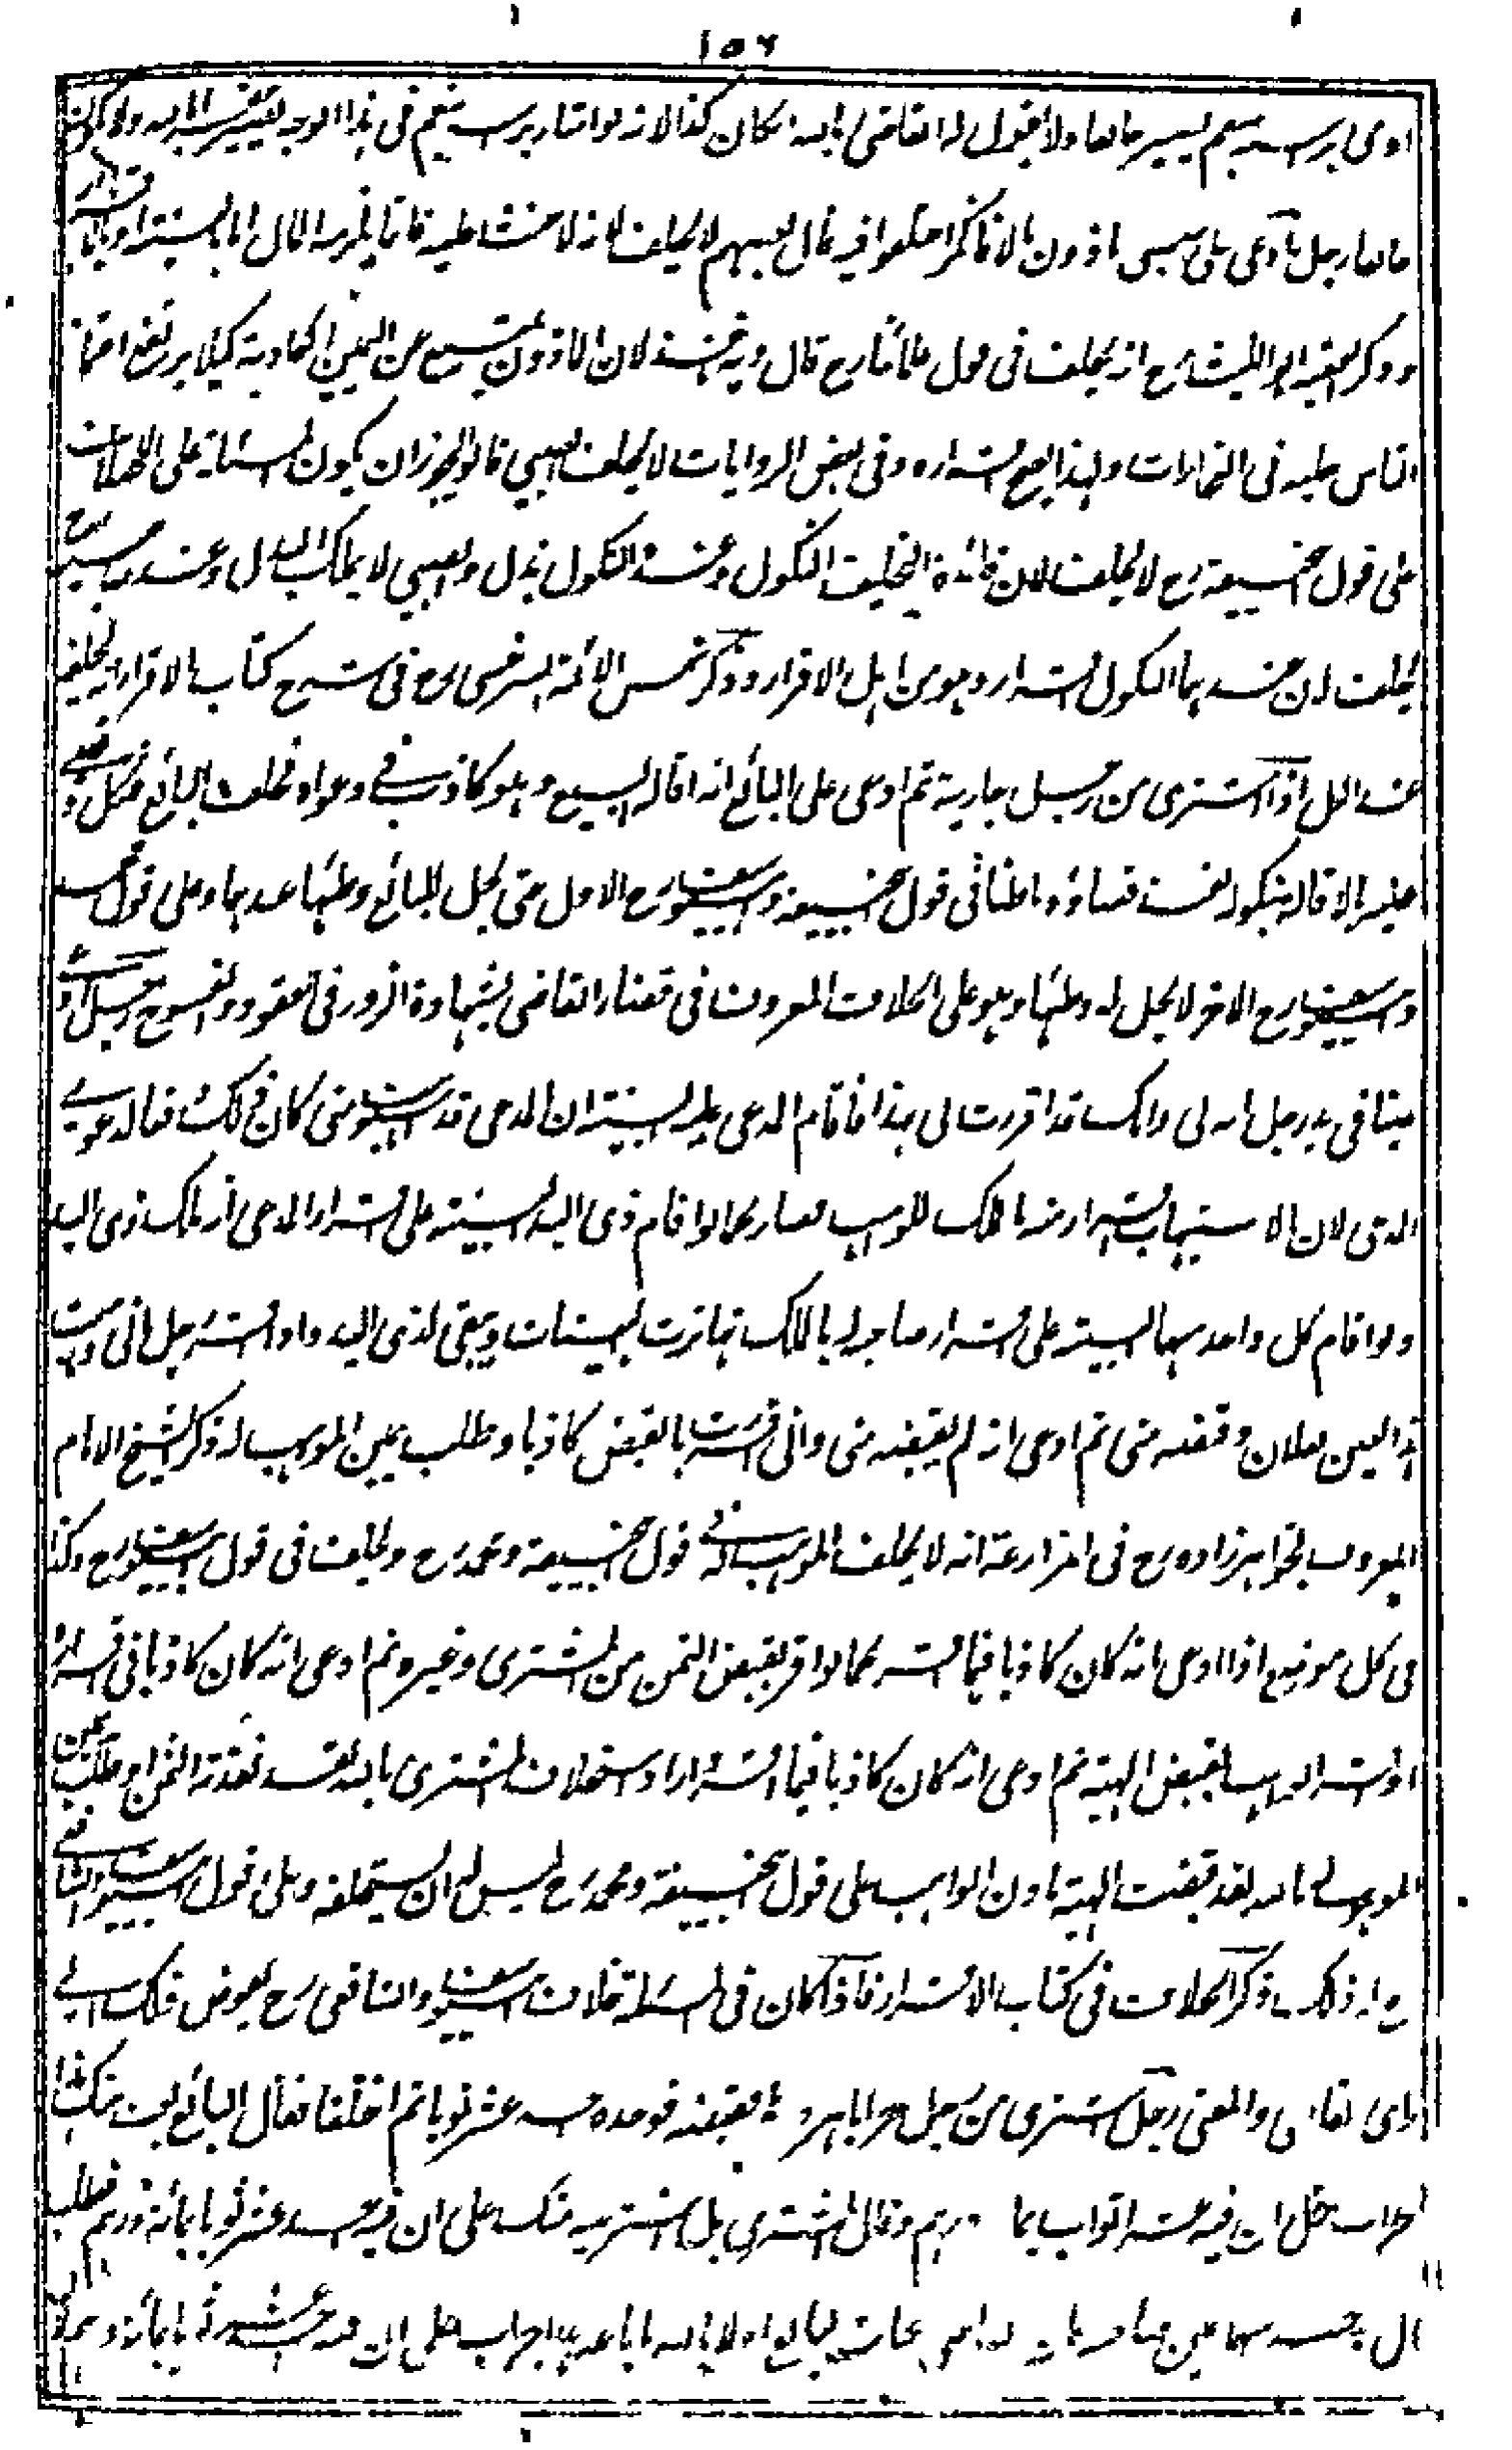 ١٥٦
ولا يقول له القاضي بالله ان كان كذا لانه لو في هذا الوجه
رجل ادعى على صبي ماذون مالا فانكر اختلفوا فيه قال بعضهم لا يحلف لانه لا حنث عليه المال
وذكر الفقيه ابو الليث رح انه يحلف في قول علمائنا رح قال وبه ناخذ لان الماذون يمتنع عن اليمين الكاذبة كيلا يرتفع
الناس عليه في التجارات ولهذا يصح اقراره وفي بعض الروايات لا يحلف الصبي قالوا يجوز ان يكون المسئلة على الاختلاف
على قول ابيحنيفة رح لا يحلف لان فائدة التحليف النكول وعنده النكول بذل والصبي لا يملك البذل وعند صاحبيه رح
يحلف لان عندهما النكول اقرار وهو من اهل الاقرار وذكر شمس الائمة السرخسي رح في شرح كتاب الاقرار انه يحلف
عند الكل اذا اشترى من رجل جارية ثم ادعى على البائع انه اقاله البيع وهو كاذب في دعواه فحلف البائع فنكل وقضى
عليه بالاقالة بنكوله نفذ قضاؤه باطنا في قول ابيحنيفة وابي يوسف رح الاول حتى يحل للبائع وطئها عندهما وعلى قول محمد
وابي يوسف رح الاخر لا يحل له وطئها وهو على الخلاف المعروف في قضاء القاضي بشهادة الزور في العقود والفسوخ رجل ادعى
عينا في يد رجل انه لي وانك قد اقررت لي بهذا فاقام المدعى عليه البينة ان المدعي قد استوهبه مني كان ذلك دفعا لدعوى
المدعي لان الاستيهاب اقرار منه بالملك للواهب فصار كما لو اقام ذي اليد البينة على اقرار المدعي انه ملك ذي اليد
ولو اقام كل واحد منهما البينة على اقرار صاحبه له بالملك تهاترت البينات ويبقى لذي اليد ولو اقر رجل اني وهبت
هذا العين لفلان وقبضه مني ثم ادعى انه لم يقبضه مني واني اقررت بالقبض كاذبا وطلب يمين الموهوب له ذكر الشيخ الامام
المعروف بخواهرزاده رح في المزارعة انه لا يحلف الموهوب له في قول ابيحنيفة ومحمد رح ويحلف في قول ابي يوسف رح وكذا
في كل موضع اذا ادعى انه كان كاذبا فيما اقر كما لو اقر بقبض الثمن من المشتري وغيره ثم ادعى انه كان كاذبا في اقراره
او اقر الواهب بقبض الهبة ثم ادعى انه كان كاذبا فيما اقر اراد استحلاف المشتري بالله لقد نقدته الثمن او طلب يمين
الموهوب له بالله لقد قبضت الهبة باذن الواهب على قول ابيحنيفة ومحمد رح ليس له ان يستحلفه وعلى قول ابي يوسف والشافعي
رح له ذلك ذكر الخلاف في كتاب الاقرار فاذا كان في المسئلة خلاف ابي يوسف والشافعي رح يفوض ذلك الى
راي القاضي والمفتي رجل اشترى من رجل جرابا هرويا فقبضه فوجده خمسة عشر ثوبا ثم اختلفا فقال البائع بعت منك هذا
الجراب على ان فيه عشرة اثواب بمائة درهم وقال المشتري بل اشتريته منك على ان فيه خمسة عشر ثوبا بمائة درهم فطلب
كل واحد منهما يمين صاحبه البائع اولا بالله ما باعه هذا الجراب على ان فيه خمسة عشر ثوبا بمائة درهم